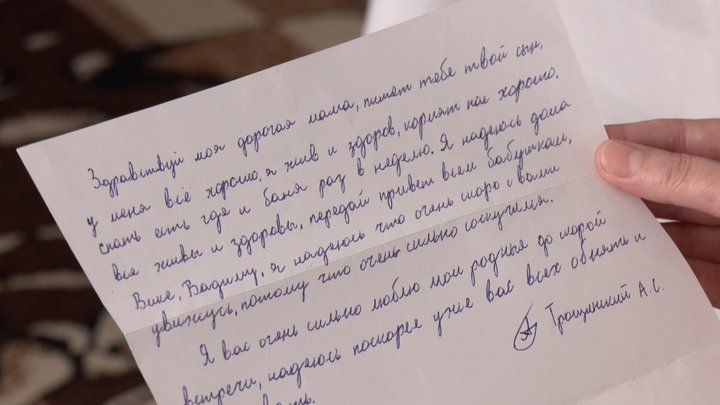 Здравствуй моя дорогая мама, пишет тебе твой сын,
у меня всё хорошо, я жив и здоров, кормят нас хорошо.
спать есть где и баня раз в неделю. Я надеюсь дома
все живы и здоровы, передай привет всем бабушкам,
Вике, Вадиму, я надеюсь что очень скоро с вами
увижусь, потому что очень сильно соскучился.
Я вас очень сильно люблю мои родные до скорой
встречи, надеюсь поскорее уже вас всех обнять и
Трощинский А.С.